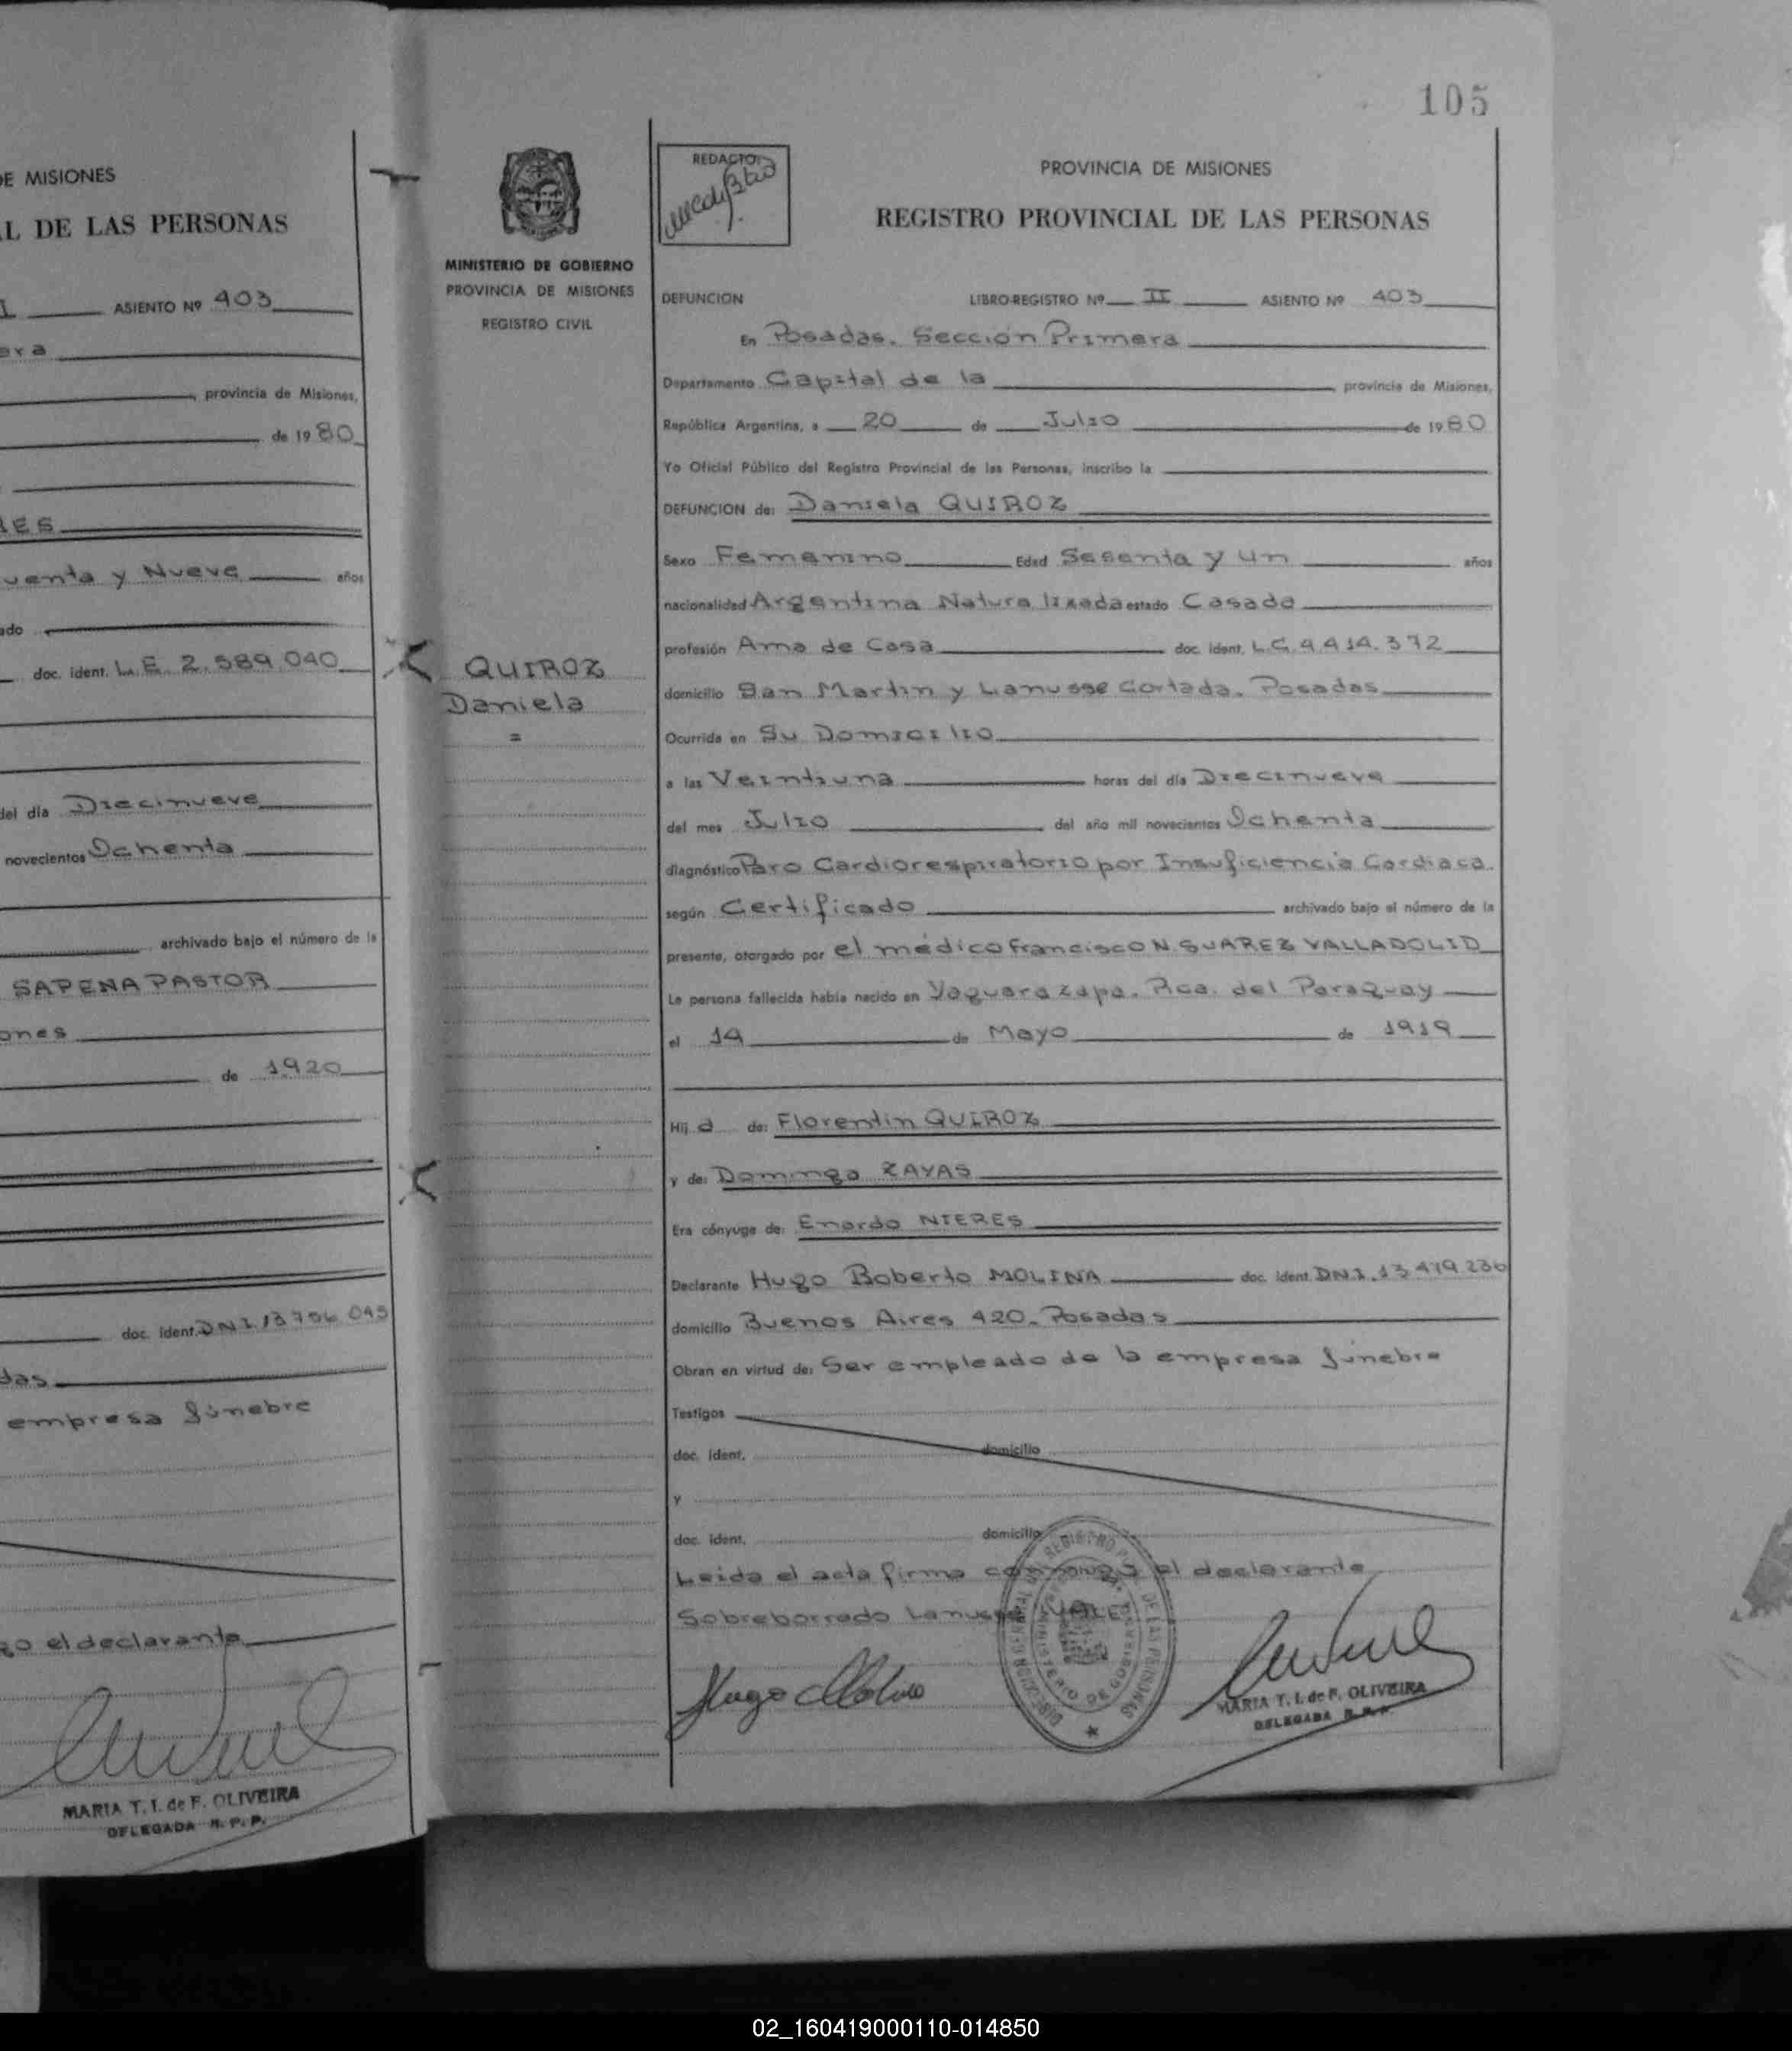 DE MISIONES
L DE LAS PERSONAS
ASIENTO Nº 403
era
provincia de Misiones,
de 1980
RES
uenta y Nueve años
ado
doc. ident. L.E. 2.589.040
del día Diecinueve
novecientos Ochenta
archivado bajo el número de la
SAPENA PASTOR
ones
de 1920
doc. ident. DNI 13756 045
das
empresa fúnebre
go el declarante
MARIA T. I. de F. OLIVEIRA
DELEGADA R. P. P.
105
MINISTERIO DE GOBIERNO
PROVINCIA DE MISIONES
REGISTRO CIVIL
QUIROZ
Daniela
=
REDACTO:
PROVINCIA DE MISIONES
REGISTRO PROVINCIAL DE LAS PERSONAS
DEFUNCION LIBRO-REGISTRO Nº II ASIENTO Nº 403
En Posadas. Sección Primera
Departamento Capital de la provincia de Misiones,
República Argentina, a 20 de Julio de 1980
Yo Oficial Público del Registro Provincial de las Personas, inscribo la
DEFUNCION de: Daniela QUIROZ
Sexo Femenino Edad Sesenta y un años
nacionalidad Argentina Naturalizada estado Casada
profesión Ama de Casa doc. ident. L.C. 4.414.372
domicilio San Martin y Lanusse Cortada. Posadas
Ocurrida en Su Domicilio
a las Veintiuna horas del día Diecinueve
del mes Julio del año mil novecientos Ochenta
diagnóstico Paro Cardiorespiratorio por Insuficiencia Cardiaca.
según Certificado archivado bajo el número de la
presente, otorgado por el médico Francisco N. SUAREZ VALLADOLID
La persona fallecida había nacido en Yaguarazapa. Rca. del Paraguay
el 14 de Mayo de 1919
Hija de: Florentin QUIROZ
y de: Dominga ZAYAS
Era cónyuge de: Enardo NIERES
Declarante Hugo Roberto MOLINA doc. ident. DN.I. 13 419.236
domicilio Buenos Aires 420. Posadas
Obran en virtud de: Ser empleado de la empresa fúnebre
Testigos
doc. ident. domicilio
y
doc. ident. domicilio
Leida el acta firma conmigo el declarante
Sobreborrado Lanusse VALE
Hugo Molina
MINISTERIO DE GOBIERNO
MARIA T. I. de F. OLIVEIRA
DELEGADA R. P. P.
02_160419000110-014850